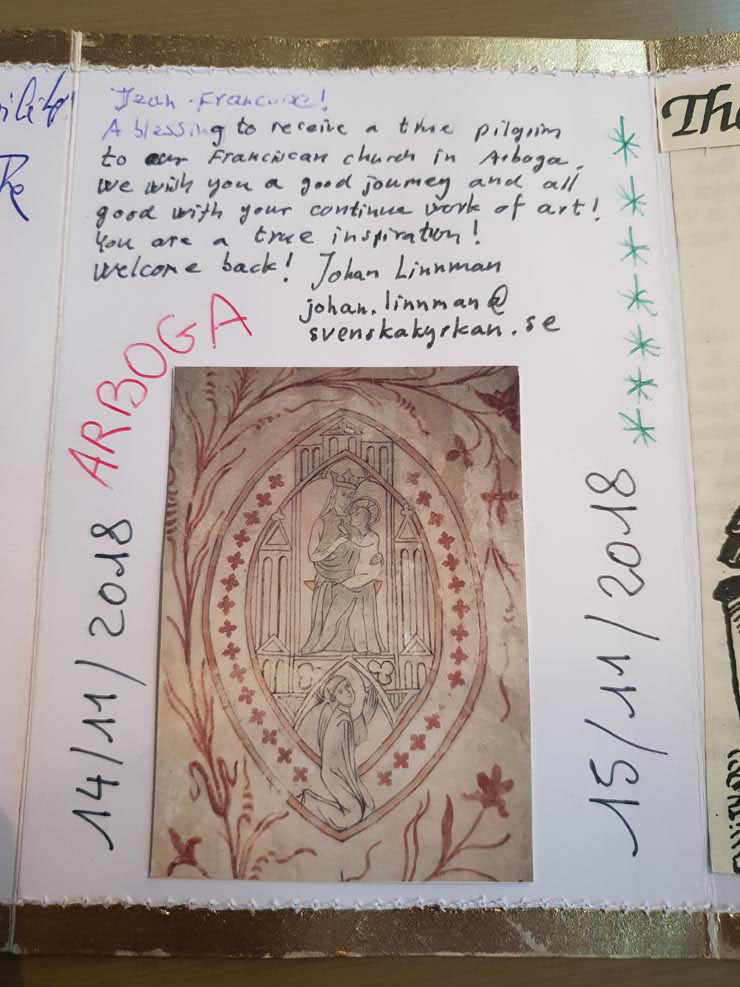 Jean-Francoise!
A blessing to receive a true pilgrim
to our Franciscan church in Arboga.
We wish you a good journey and all
good with your continue work of art!
You are a true inspiration!
Welcome back! Johan Linnman
johan.linnman@
svenskakyrkan.se
ARBOGA
14/11/2018
15/11/2018
The